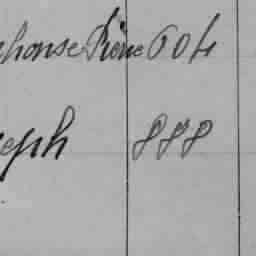 phonse Pierre 604
seph 888